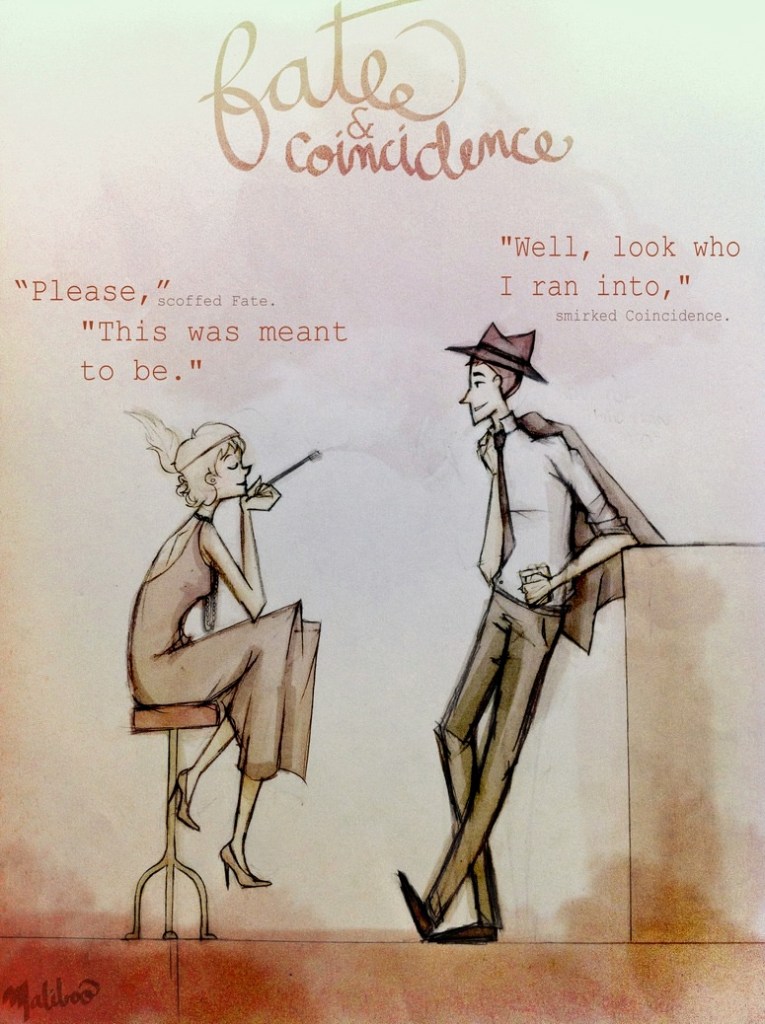 fate
&
coincidence
"Well, look who
I ran into,"
smirked Coincidence.
“Please,” scoffed Fate.
"This was meant
to be."
Maliboo